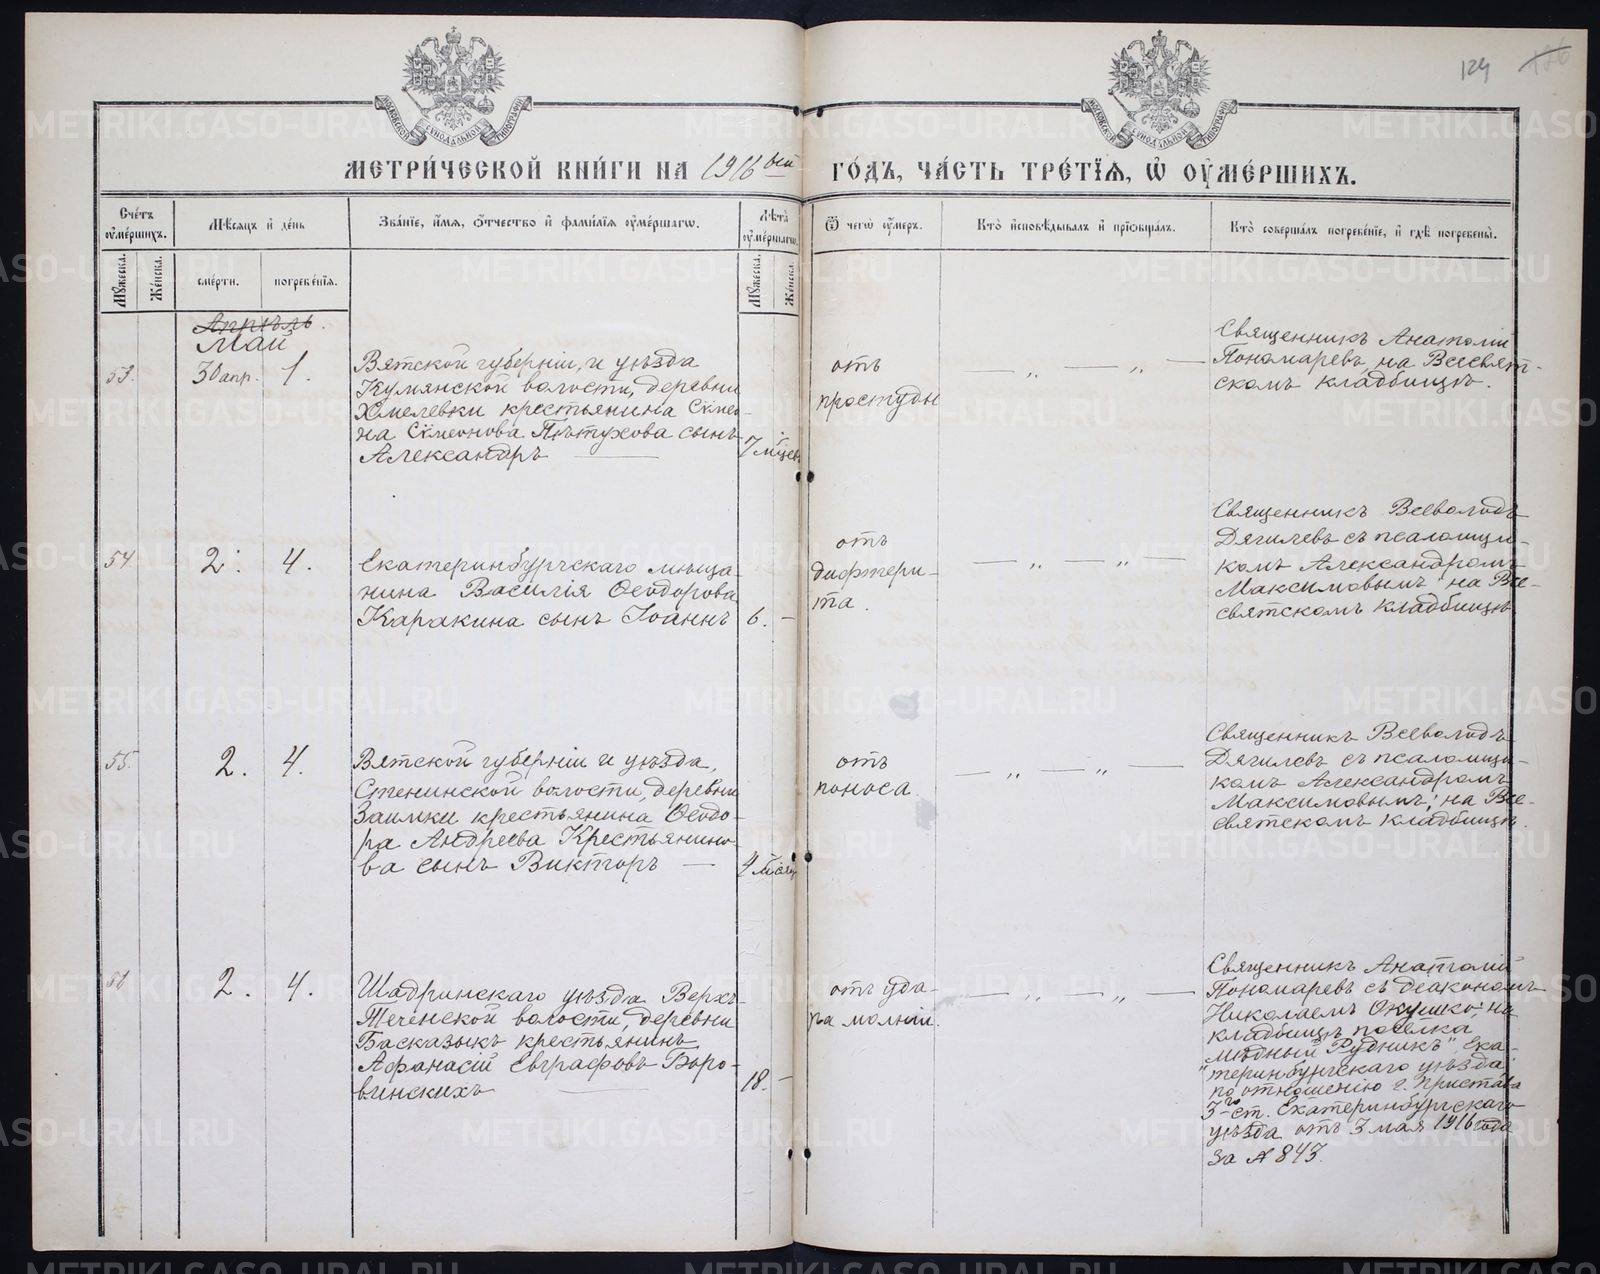 124 126
МОСКОВСКОЙ СѴНОДАЛЬНОЙ ТИПОГРАФІИ
МОСКОВСКОЙ СѴНОДАЛЬНОЙ ТИПОГРАФІИ
МЕТРИ́ЧЕСКОЙ КНИ́ГИ НА 1916 вый ГО́ДЪ, ЧА́СТЬ ТРЕ́ТІѦ, Ѡ ОУМЕ́РШИХЪ.
Сче́тъ оумершихъ. Мѣ́сяцъ и҆ де́нь Зва́нїе, и҆́мя, ѻ҆́тчество и҆ фами́лїя оумершагѡ. Лѣ́та оумершагѡ. Ѿ чегѡ̀ оу҆́меръ. Кто̀ и҆сповѣ́дывалъ и҆ прїѡбща́лъ. Кто̀ соверша́лъ погребе́нїе, и҆ гдѣ̀ погребены̀.
Мꙋ́жеска. Же́нска. сме́рти. погребе́нїя. Мꙋ́жеска. Же́нска.
Апрѣль.
Май
53. 30 апр. 1.
Вятской губерніи, и уѣзда
Кумянской волости, деревни
Хмелевки крестьянина Сѵмео-
на Сѵмеонова Пѣтухова сынъ
Александръ
7 мѣсев
отъ
простуды
— „ — „ —
Священникъ Анатолій
Пономаревъ, на Всесвят-
скомъ кладбищѣ.
54. 2. 4.
Екатеринбургскаго мѣща-
нина Василія Ѳеодорова
Каракина сынъ Іоаннъ
6. —
отъ
дифтери-
та.
— „ — „ —
Священникъ Всеволодъ
Дягилевъ съ псаломщи-
комъ Александромъ
Максимовымъ на Все-
святскомъ кладбищѣ
55. 2. 4.
Вятской губерніи и уѣзда,
Стенинской волости, деревни
Заимки крестьянина Ѳеодо-
ра Андреева Крестьянино-
ва сынъ Викторъ —
4 мѣсяц
отъ
поноса
— „ — „ —
Священникъ Всеволодъ
Дягилевъ съ псаломщи-
комъ Александромъ
Максимовымъ; на Все-
святскомъ кладбищѣ.
2. 4.
Шадринскаго уѣзда Верхъ-
Теченской волости, деревни
Басказыкъ крестьянинъ
Аѳанасій Евграфовъ Боро-
винскихъ
18. —
отъ уда-
ра молніи.
— „ — „ —
Священникъ Анатолій
Пономаревъ съ діакономъ
Николаемъ Окушко, на
кладбищѣ посёлка
„Мѣдный Рудникъ" Ека-
теринбургскаго уѣзда
по отношенію г. Пристава
3го ст. Екатеринбургскаго
уѣзда отъ 3 мая 1916 года
за № 843.
METRIKI.GASO-URAL.RU